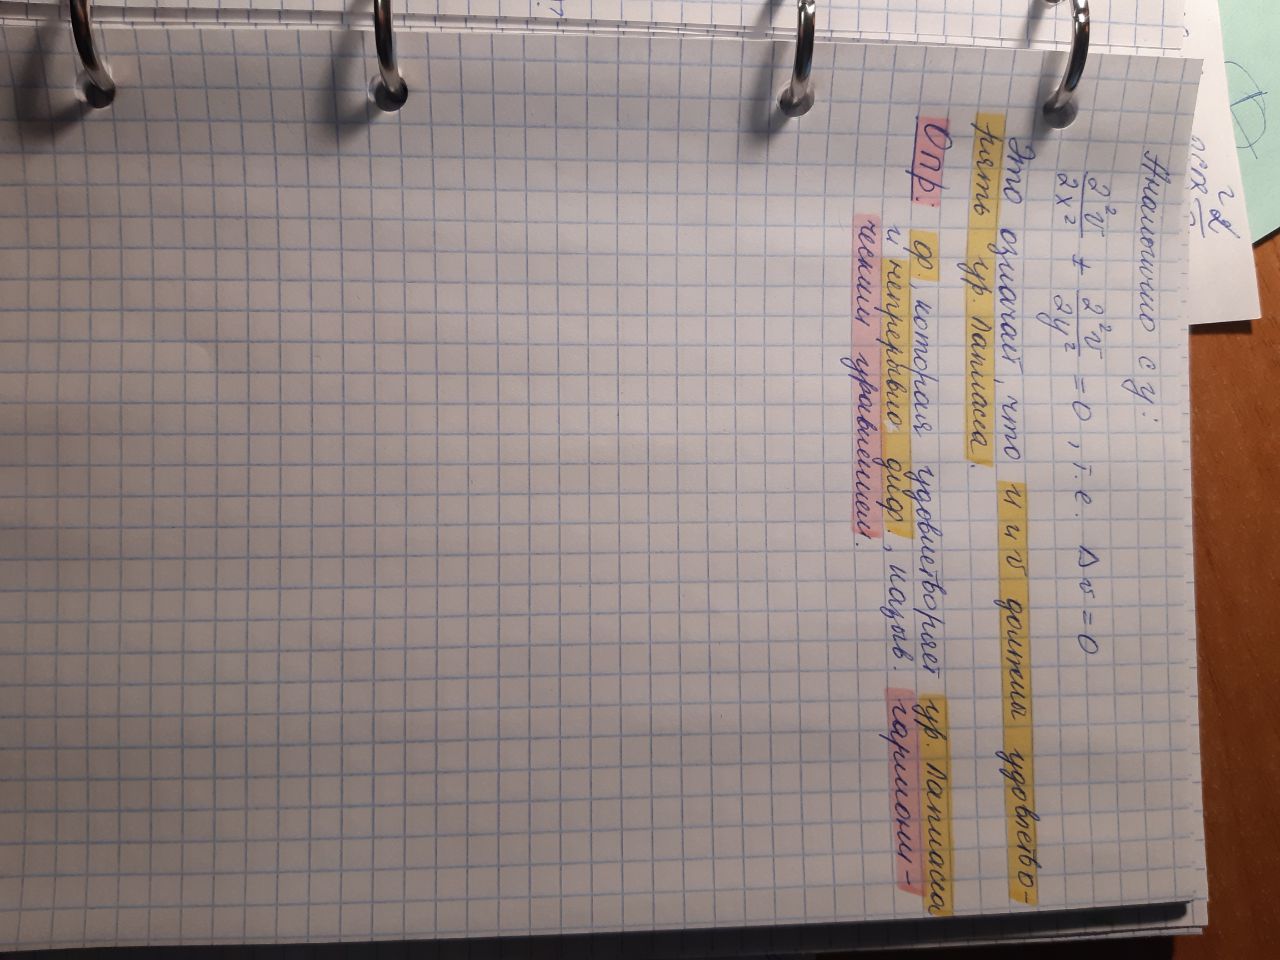 Аналогично с y:
∂²v/∂x² + ∂²v/∂y² = 0, т.е. Δv = 0
Это означает, что u и v должны удовлетво-
рять ур. Лапласа.
Опр: ф., которая удовлетворяет ур. Лапласа
и непрерывно диф., назыв. гармони-
ческим уравнением.